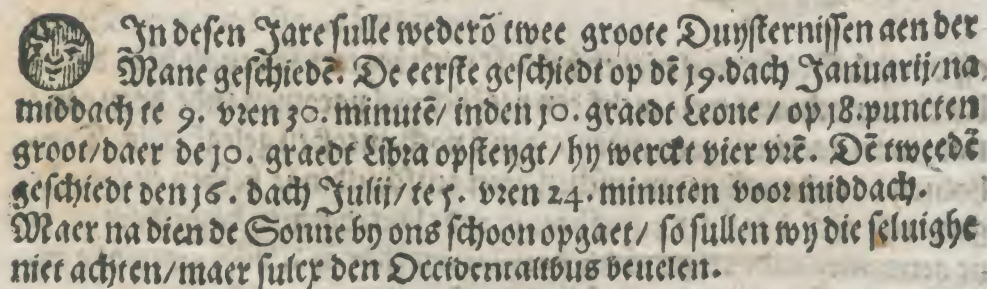 In desen Jare sulle wederō twee groote Duysternissen aen der
Mane geschiedē. De eerste geschiedt op dē 19. dach Januarij/ na
middach te 9. vren 30. minutē/ inden 10. graedt Leone / op 18. puncten
groot/ daer de 10. graedt Libra opsteygt/ hy werckt vier vrē. Dē tweedē
geschiedt den 16. dach Julij/ te 5. vren 24. minuten voor middach.
Maer na dien de Sonne by ons schoon opgaet/ so sullen wy die seluighe
niet achten/ maer sulcx den Occidentalibus beuelen.